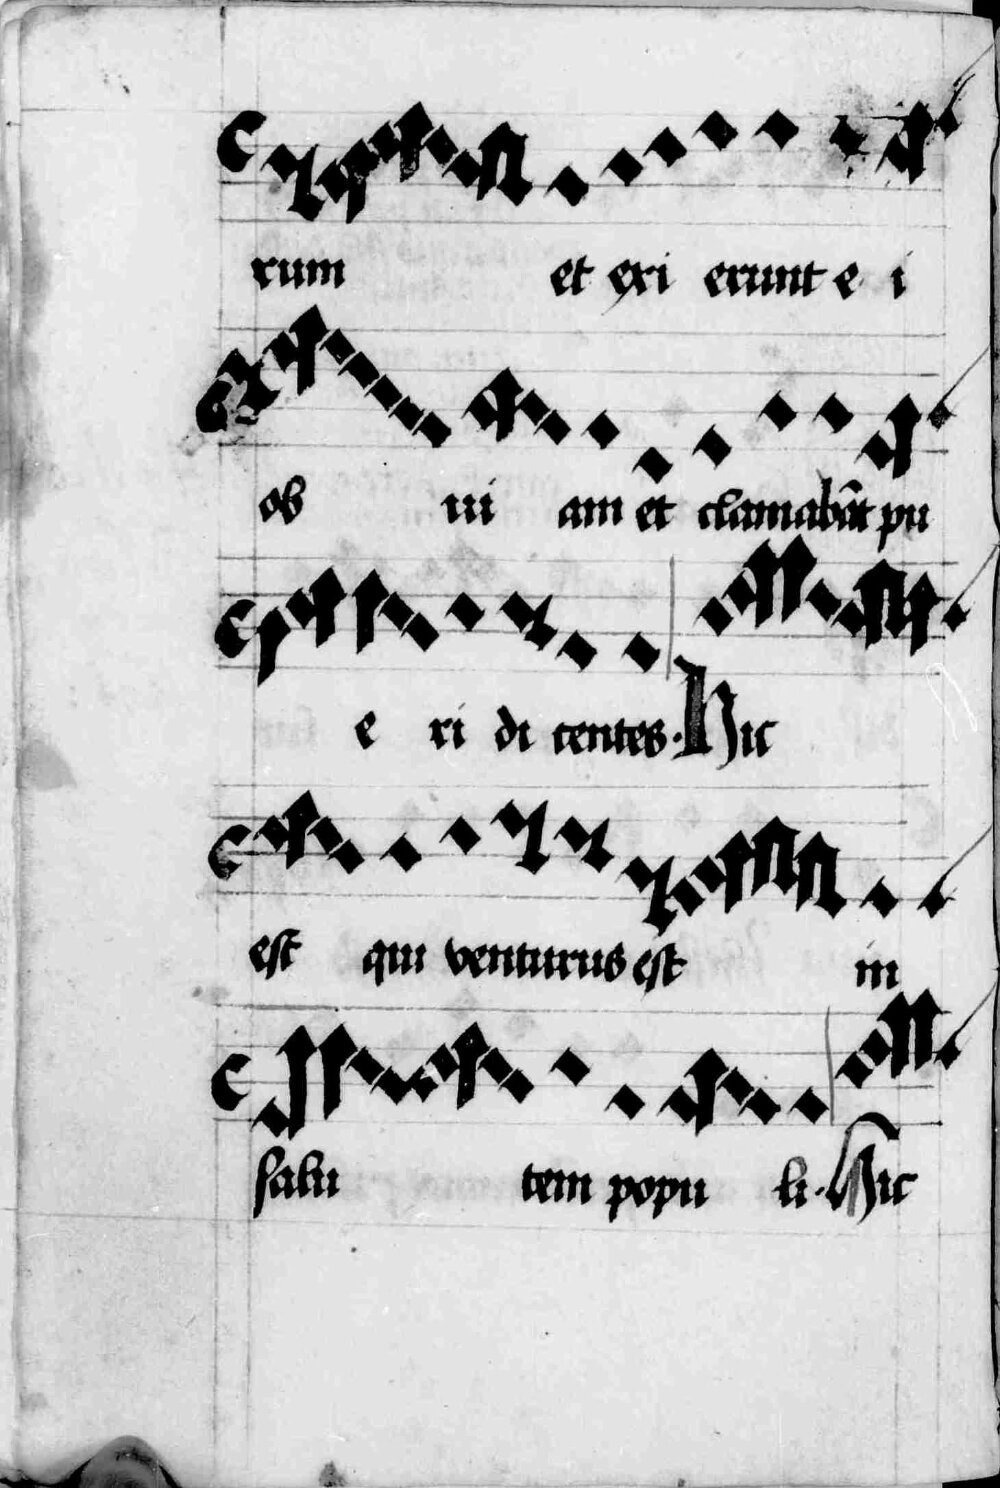 rum et exi erunt e i
ob ui am et clamabāt pu
e ri di centes. Hic
est qui venturus est in
salu tem popu li. Hic